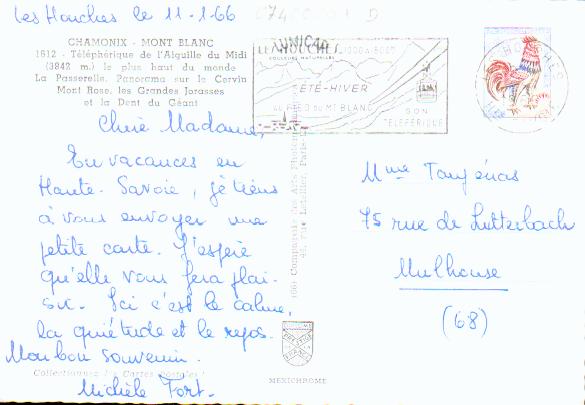 Les Houches le 11-1-66
CHAMONIX - MONT BLANC
1612 - Téléphérique de l'Aiguille du Midi
(3842 m.) le plus haut du monde
La Passerelle. Panorama sur le Cervin
Mont Rose, les Grandes Jorasses
et la Dent du Géant
LES HOUCHES 1000 A 1800 M
ÉTÉ-HIVER
AU PIED DU MT BLANC
SON
TÉLÉFÉRIQUE
Chère Madame,
En vacances en
Haute-Savoie, je tiens
à vous envoyer une
petite carte. J'espère
qu'elle vous fera plai-
sir. Ici c'est le calme,
la quiétude et le repos.
Mon bon souvenir.
Michèle Fort.
Collectionnez les Cartes Postales !
MEXICHROME
Mme
75 rue de Lutterbach
Mulhouse
(68)